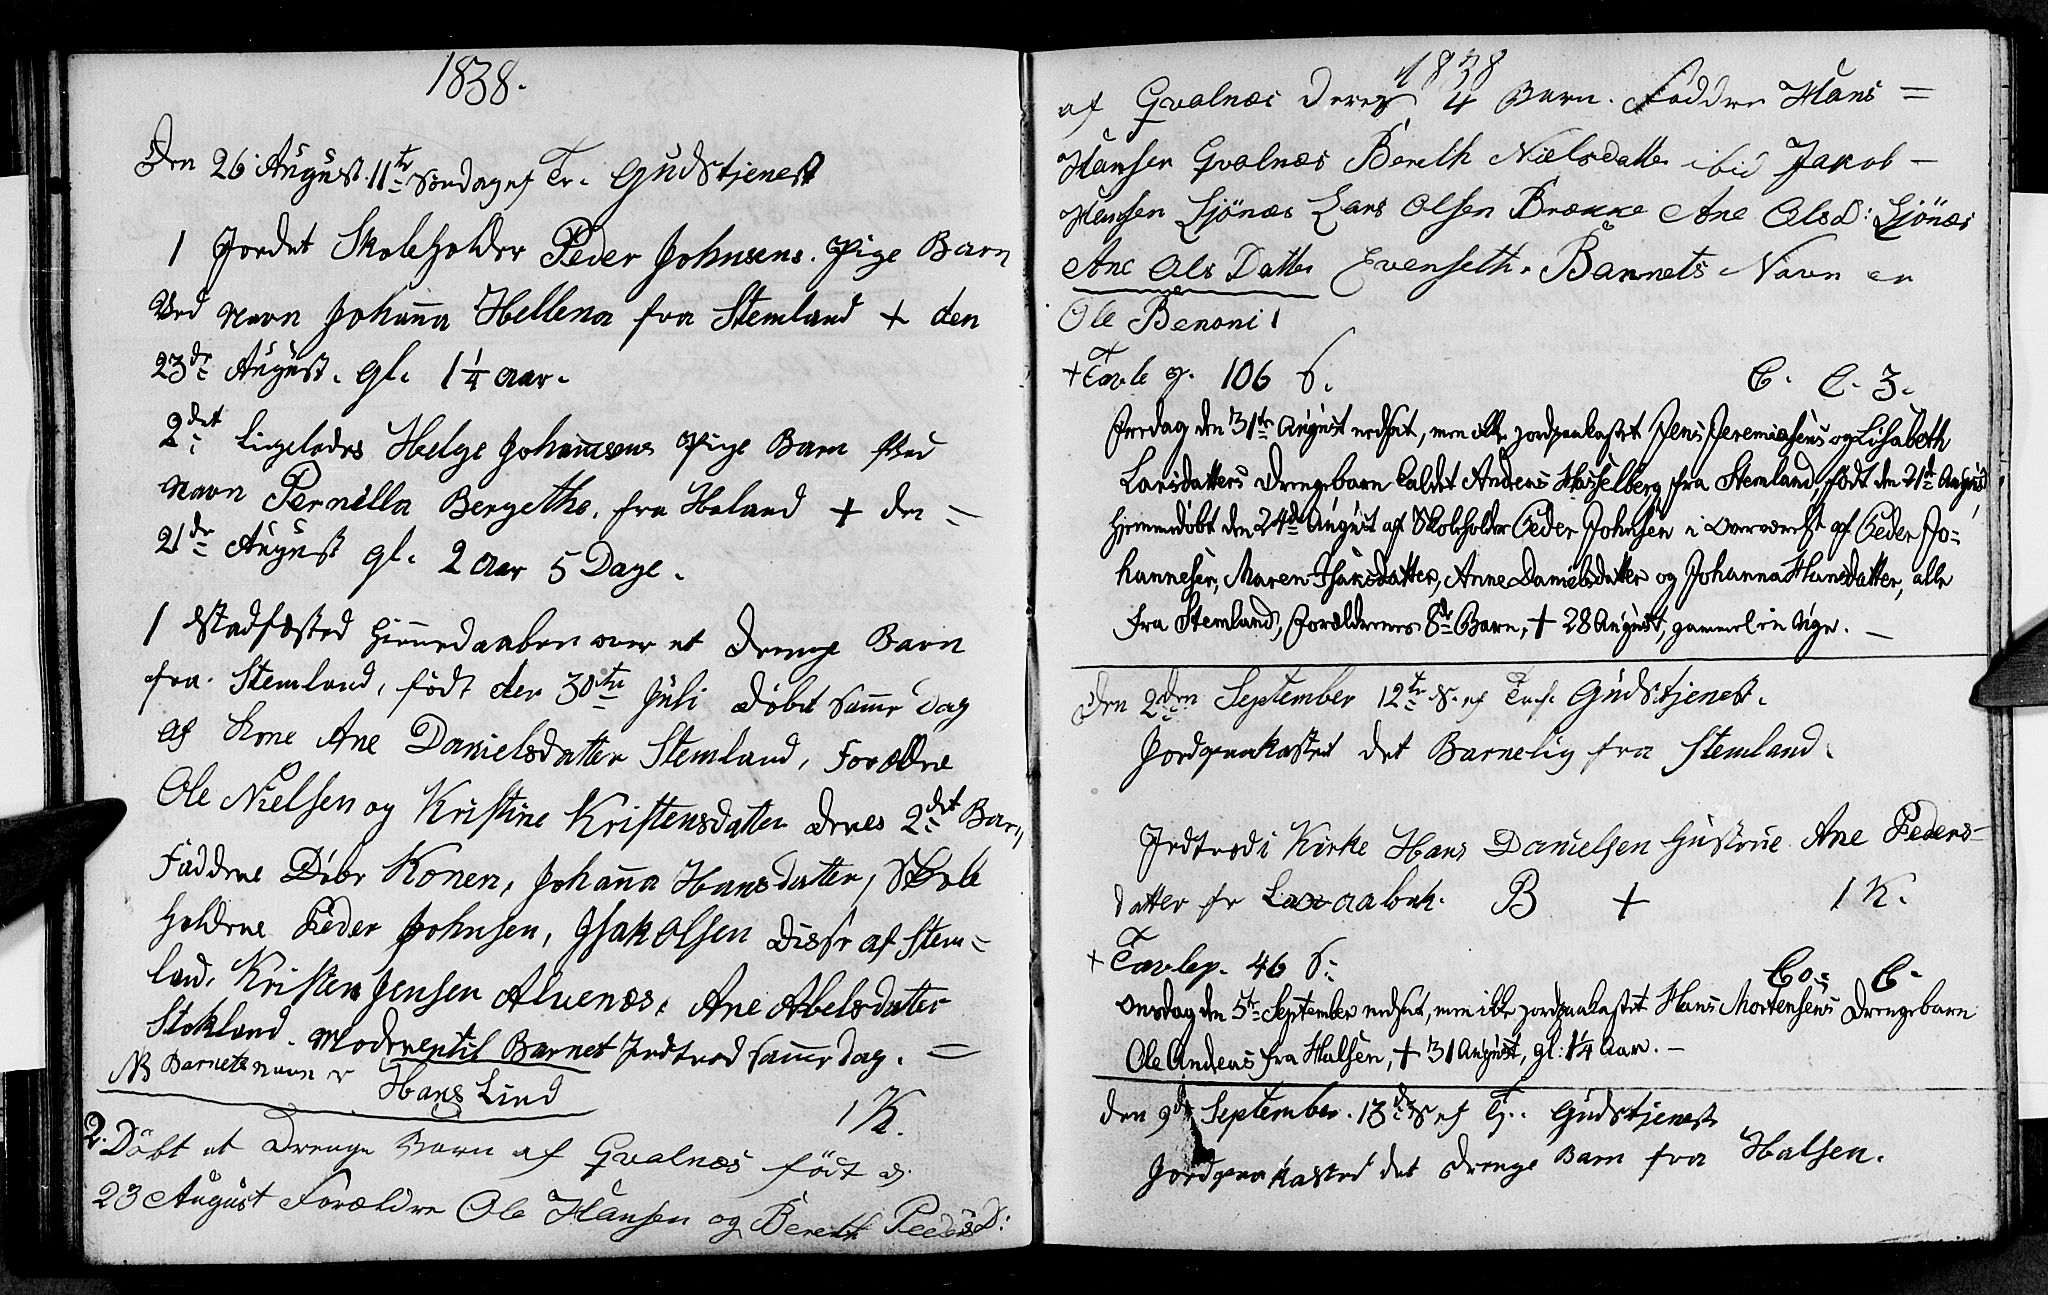 1838.
Den 26 August. 11te Søndag ef Tr. Gudstjenest
1 Jordet Skoleholder Peder Johnsens. Pige Barn
Ved Navn Johanna Hellena fra Stemland + den
23de August. gl. 1 1/4 Aar.
2det Ligeledes Helge Johannsens Pige Barn Ved
Navn Pernilla Bergethe. fra Holand + den =
21de August gl. 2 Aar 5 Dage.
1 Stadfæsted Hiemmedaaben over et Drenge Barn
fra Stemland, født den 30te Juli Døbt samme Dag
af Kone Ane Danielsdatter Stemland, Forældre
Ole Nielsen og Kristine Kristensdatter Deres 2det Barn,
Faddrene Døbe Konen, Johanna Hansdatter, Skole
holdene Peder Johnsen, Isak Olsen Disse af Stem=
land. Kristen Jensen Alvenæs. Ane Abelsdatter
Stokland. Moderen til Barnet Indtraad samme dag. =
NB Barnets navn er Hans Lind
1 K.
2. Döbt et Drenge Barn af Qvalnæs født d.
23 August Forældre Ole Hansen og Bereth Peders D:
1838
af Qvalnæs Deres 4 Barn. Faddre Hans =
Hansen Qvalnæs Bereth Nielsdatter ibid Jakob -
Hansen Ljönæs Lars Olsen Brække Ane Ols D: Ljönæs
Ane Ols Datter Evenseth. Barnets Navn er
Ole Benoni 1
+ Tavle p. 106 S.
C. C. 3.
Fredag den 31te August nedsat, men ikke jordpaakastet Jens Jeremiasens og Lisabeth
Larsdatters Drengebarn kaldet Andreas Hasselberg fra Stemland, født den 21de August,
hjemmedøbt den 24de August af Skoleholder Peder Johnsen i Overværelse af Peder Jo=
hannesen, Maren Isaksdatter, Anne Danielsdatter og Johanna Hansdatter, alle
fra Stemland, Forældrenes 8de Barn, + 28 August, gammel en Uge. —
Den 2den September 12te S. ef Tref. Gudstjenest.
Jordpaakasted det Barnelig fra Stemland.
Indtraad i Kirke Hans Danielsen Hustrue Ane Peders-
datter fr Laxaabak. B + 1 K.
+ Tavlep. 46 S.
Co. C.
Onsdag den 5te September nedsat, men ikke jordpaakastet Hans Mortensens Drengebarn
Ole Andreas fra Halsen, + 31 August, gl: 1 1/4 Aar. —
den 9de September. 13de S ef Tr. Gudstjenest
Jordpaakasted det Drenge Barn fra Halsen.